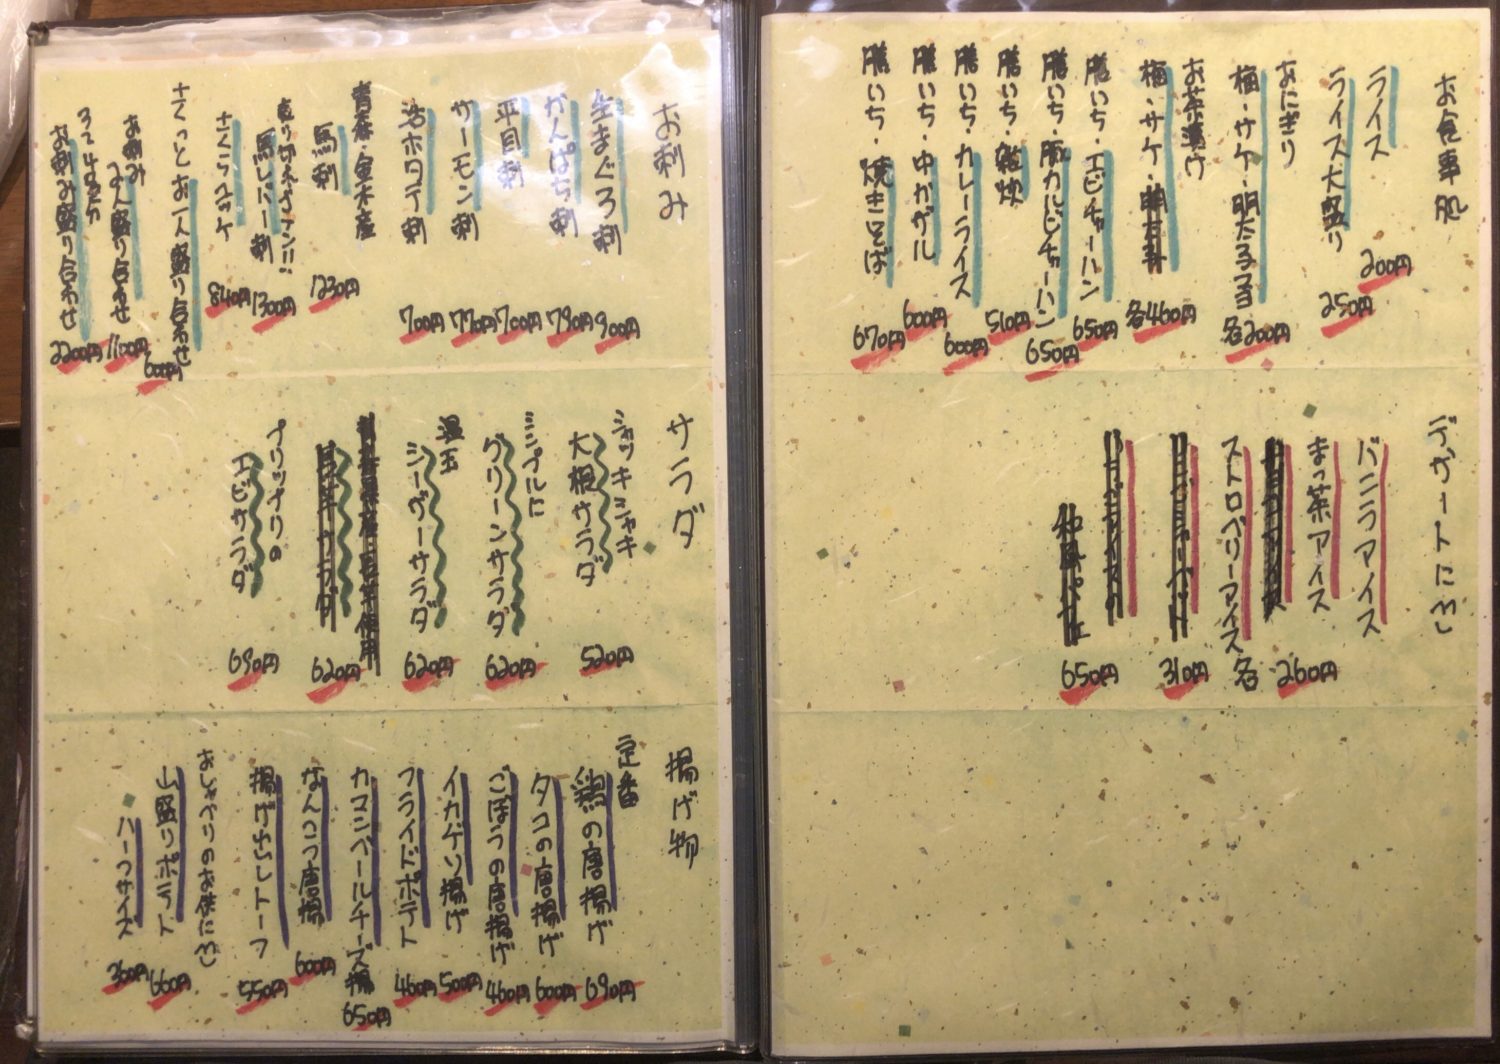 お食事処
ライス
200円
ライス大盛り
250円
おにぎり
梅・サケ・明太子
各200円
お茶漬け
梅・サケ・明太子
各460円
膳いち・エビチャーハン
650円
膳いち・豚カルビチャーハン
650円
膳いち・雑炊
510円
膳いち・カレーライス
600円
膳いち・中かガル
600円
膳いち・焼きそば
670円
デザートに
バニラアイス
まっ茶アイス
ストロベリーアイス
各 260円
310円
和風パフェ
650円
お刺み
生まぐろ刺
900円
かんぱち刺
790円
平目刺
700円
サーモン刺
770円
活ホタテ刺
700円
青森・金木産
馬刺
1230円
馬レバー刺
1300円
さくらユッケ
840円
さくっとお一人盛り合わせ
600円
お刺み
2人盛り合わせ
1100円
3〜4人まえ
お刺み盛り合わせ
2200円
サラダ
シャッキシャキ
大根サラダ
520円
シンプルに
グリーンサラダ
620円
温玉
シーザーサラダ
620円
620円
プリップリの
エビサラダ
690円
揚げ物
定番
鶏の唐揚げ
690円
タコの唐揚げ
600円
ごぼうの唐揚げ
460円
イカゲソ揚げ
500円
フライドポテト
460円
カマンベールチーズ揚
650円
なんコツ唐揚
600円
揚げ出しトーフ
550円
おしゃべりのお供に
山盛りポテト
660円
ハーフサイズ
360円